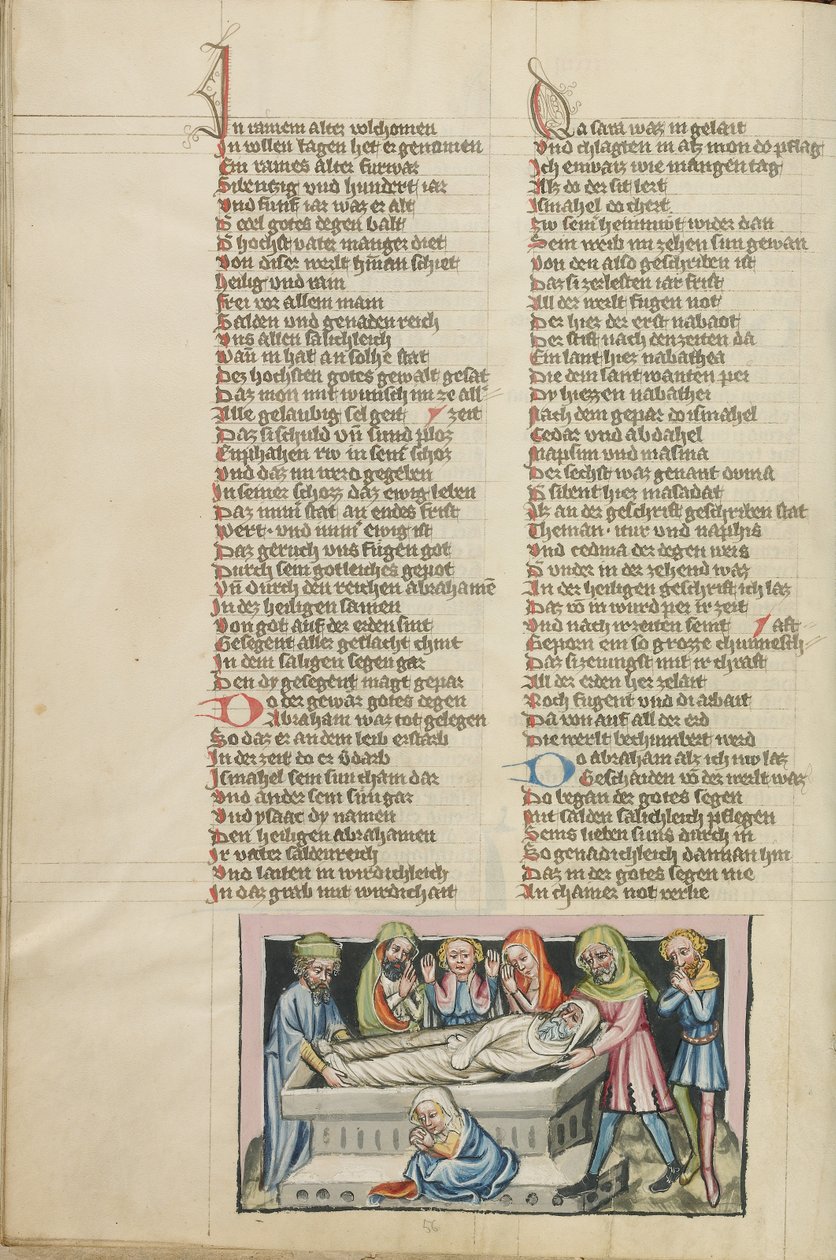 In rainem alter volchomen
In vollen tagen het er genomen
Ein raines alter furwar
Sibentzig vnd hundert iar
Vnd funf iar waz er alt
D edel gotes degen balt
D hochst vater manger diet
Von diser werlt hinnan schiet
Heilig vnd rain
Frei vor allem main
Salden vnd genaden reich
Vns allen salichleich
Wann in hat an solhe stat
Dez hochsten gotes gewalt gesat
Daz mon mit wunsch im ze all
Alle gelaubig sel geit zeit
Daz si schuld vn sund ploz
Enphahen rw in seiner schoz
Vnd daz in werd gegeben
In seiner schozz daz ewig leben
Daz nimmer stat an endes frist
Wert vnd nimmer ewig ist
Daz geruch vns fugen got
Durch sein gotleiches gepot
Vn durch den reichen abrahame
In dez heiligen samen
Von got auf der erden sint
Gesegent aller geslacht chint
In dem saligen segen gar
Den dy gesegent magt gepar
Do der gewar gotes degen
Abraham waz tot gelegen
So daz er an dem leib erstarb
In der zeit do er verdarb
Ismahel sein sun cham dar
Vnd ander sein sun gar
Vnd ysaac dy namen
Den heiligen abrahamen
Ir vater saldenreich
Vnd laiten in wirdichleich
In daz grab mit wirdichait
Da sara waz in gelait
Vnd chlagten in alz mon do pflag
Ich enwaiz wie mangen tag
Alz do der sit lert
Ismahel do chert
Zw sein heimmwt wider dan
Sein weib im zehen sun gewan
Von den also geschriben ist
Daz si ze lesten iar frist
All der werlt fugen not
Der hiez der erst nabaot
Der stift nach den zeiten da
Ein lant hiez nabathea
Die dem lant wanten per
Dy hiezzen nabather
Nach dem gepar do ismahel
Cedar vnd abdahel
Mapsim vnd masma
Der sechst waz genant duma
D sibent hiez masadat
Alz an der geschrift geschriben stat
Theman itur vnd naphis
Vnd cedma der degen weis
D vnder in der zehend waz
In der heiligen geschrift ich laz
Daz von in wurd per ir zeit
Vnd nach ir zeiten seint aft
Geporn ein so grozze chunnesch
Daz si zenugst mit ir chraft
All der erden her zelait
Noch fugent vnd di arbait
Da von auf all der erd
Die werlt bechumbert werd
Do abraham alz ich nw laz
Geschaiden von der werlt waz
Do began der gotes segen
Mit salden salichleich pflegen
Seins lieben suns durch in
So genadichleich dannan hin
Daz in der gotes segen nie
In chainer not verlie
56